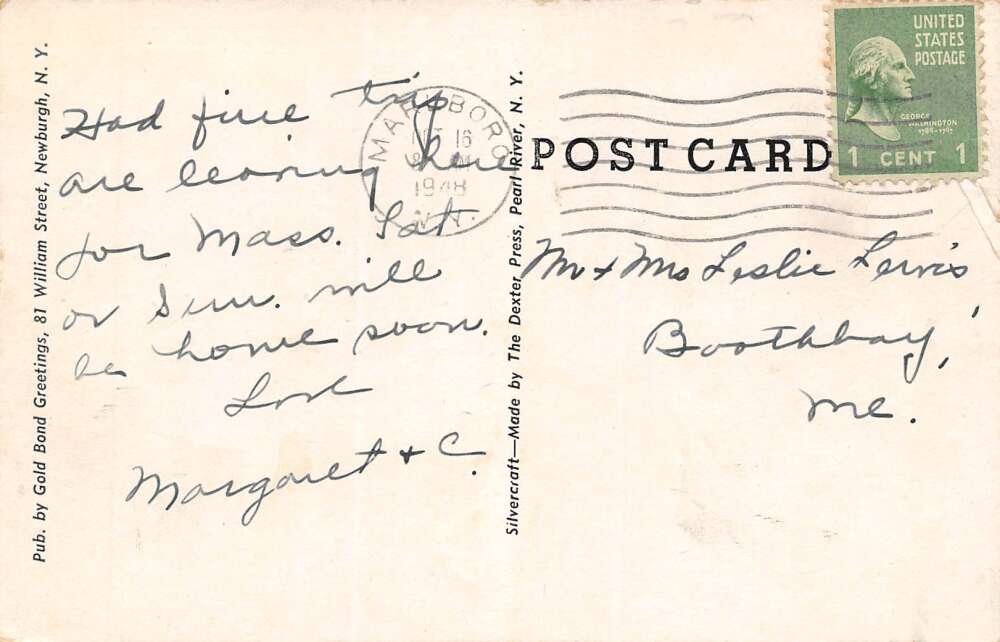 Pub. by Gold Bond Greetings, 81 William Street, Newburgh, N. Y.
Had fine trip
are leaving here
for Mass. Sat
or Sun. will
be home soon.
Love
Margaret & C.
MARLBORO
16
1948
N.Y.
Silvercraft—Made by The Dexter Press, Pearl River, N. Y.
POST CARD
UNITED
STATES
POSTAGE
GEORGE
WASHINGTON
1789-1797
1 CENT 1
Mr & Mrs Leslie Lewis
Boothbay,
Me.